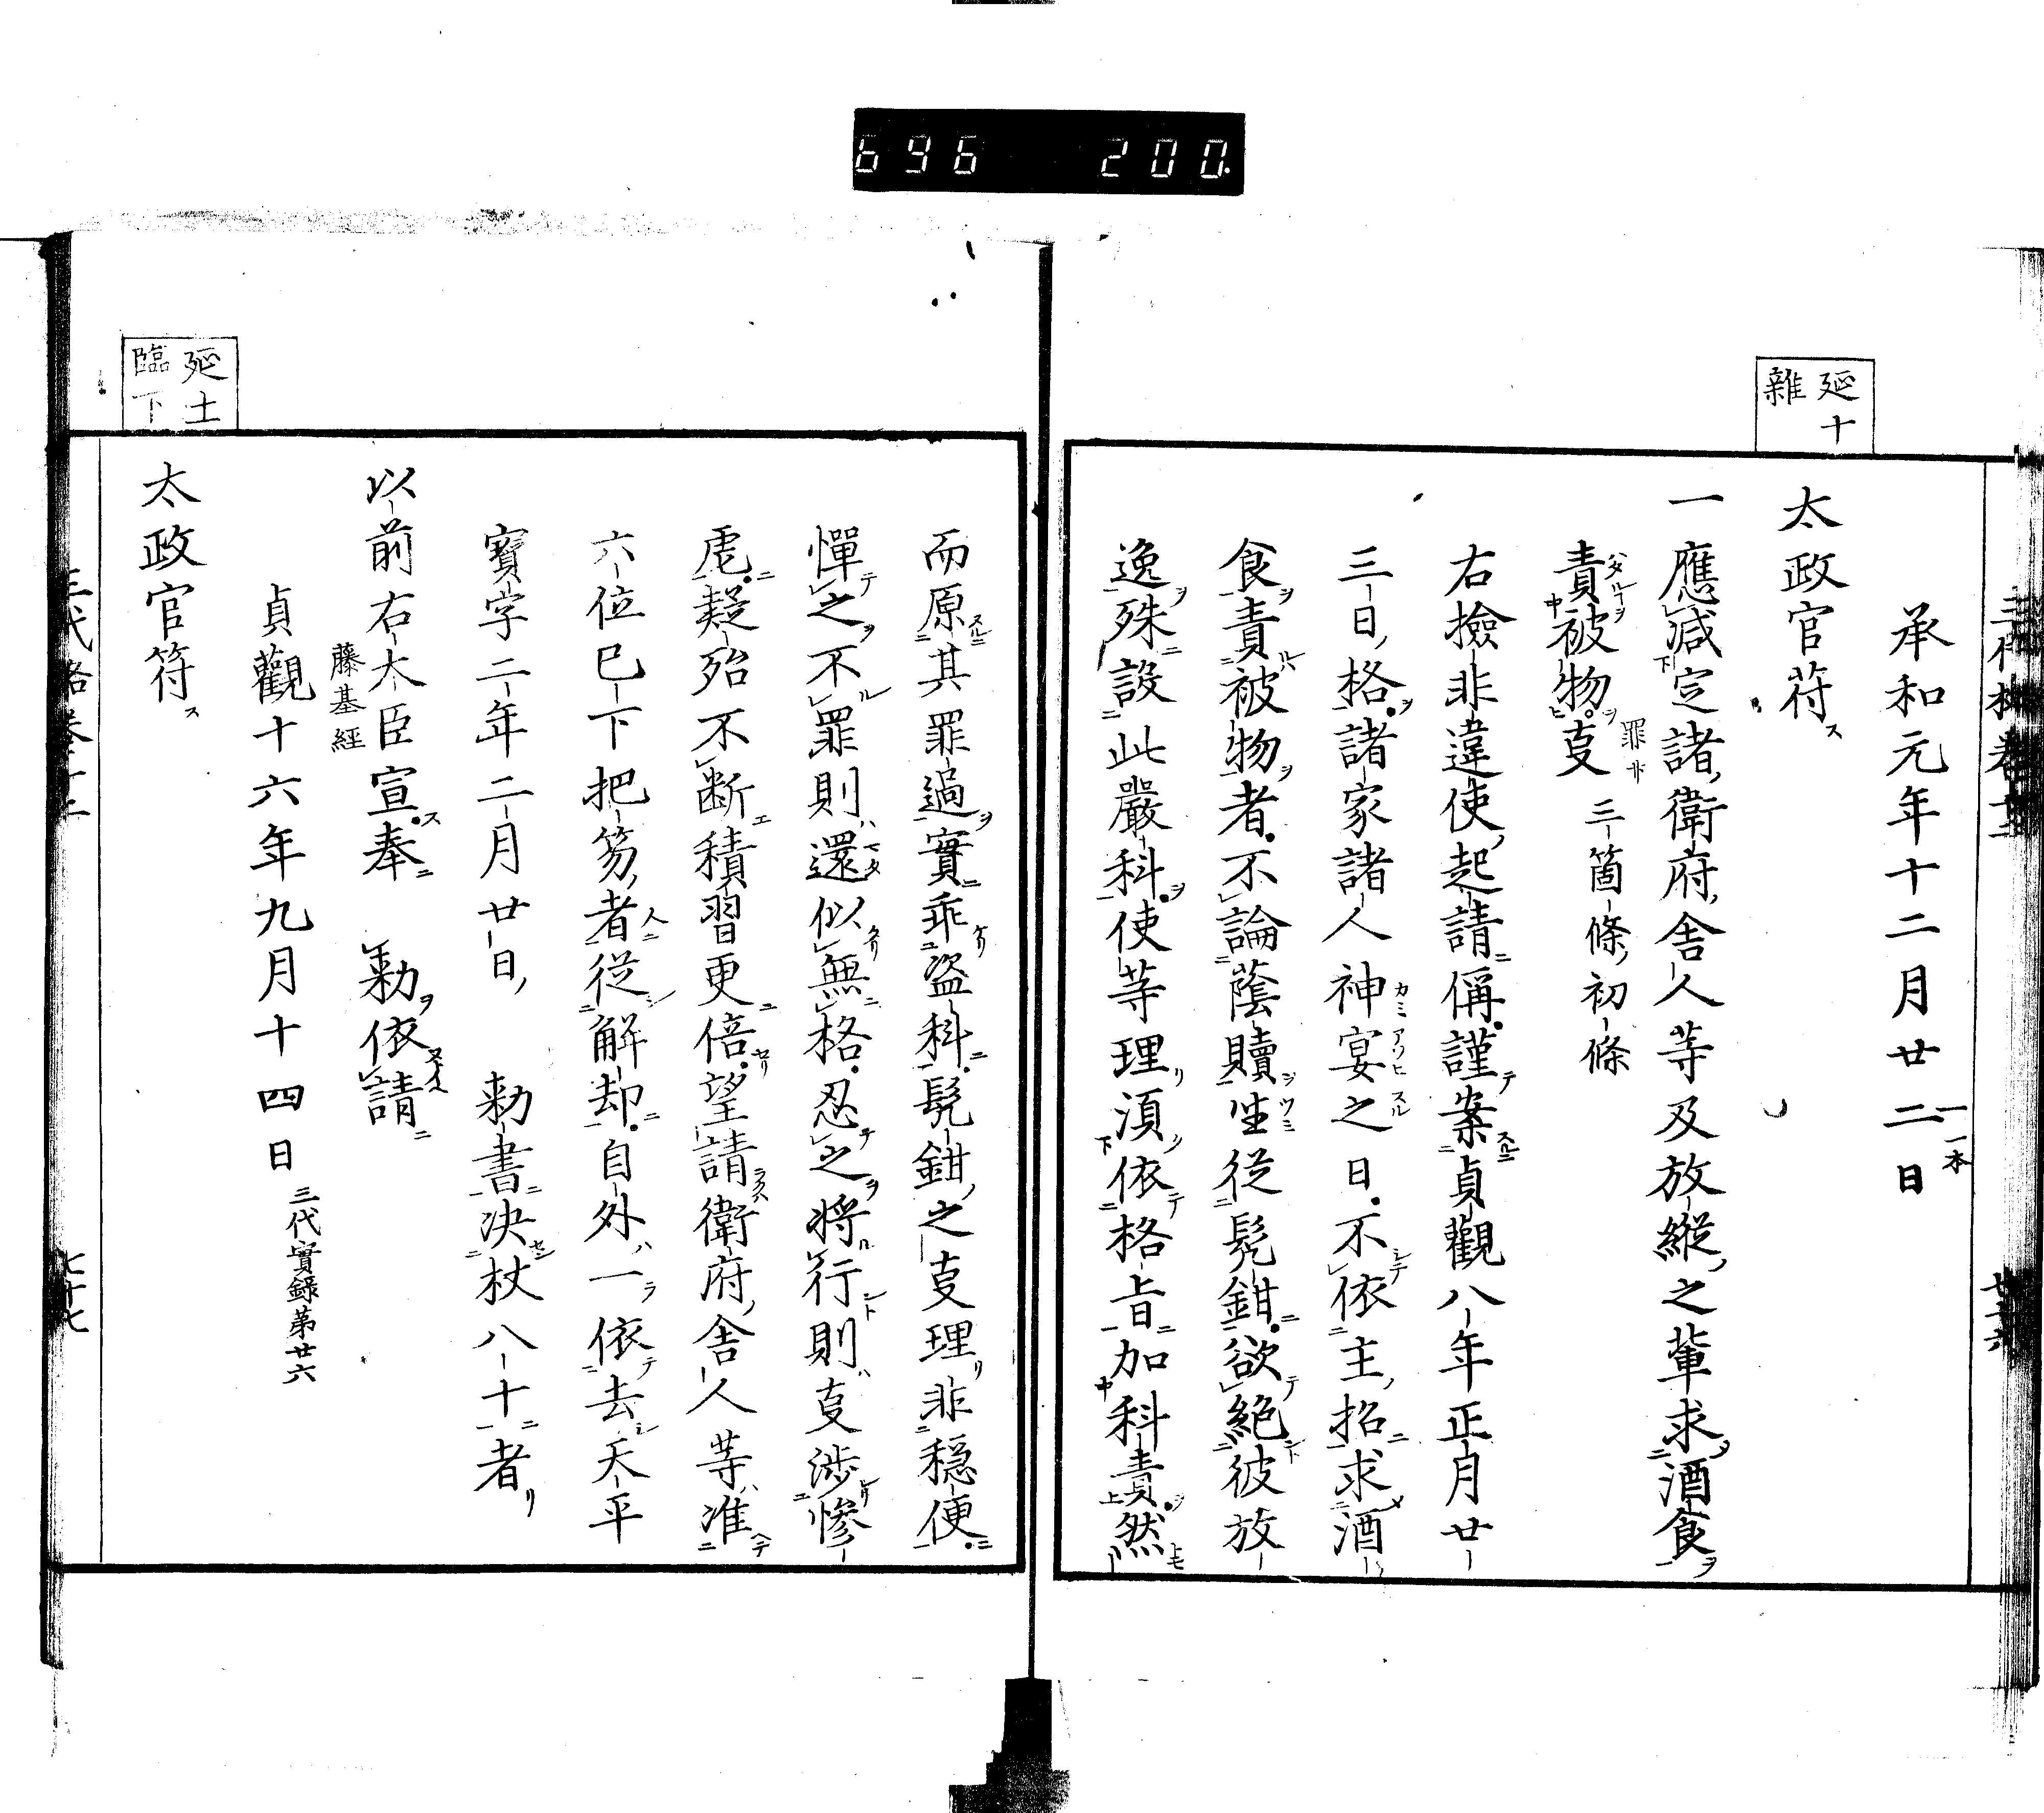 696 200.
延十
雜
承和元年十二月廿二日
一一本
太政官苻ス
一應減定諸衛府舍人等及放縱之輩求酒食
責被物㕝 三箇條初條
罪
右撿非違使起請偁謹案貞觀八年正月廿
三日格諸家諸人神宴之日不依主招求酒
カミアソヒスル
食責被物者不論蔭贖坐從髡鉗欲絶彼放
逸殊設此嚴科使等理湏依格旨加科責然
而原其罪過實乖盗科髡鉗之㕝理非穏便
憚之不罪則還似無格忍之將行則㕝渉惨
虐疑殆不断積習更倍望請衛府舍人等准
六位已下把笏者從解却自外一依去天平
寶字二年二月廿日 勅書決杖八十者
以前右大臣宣奉 勅依請
藤基經
貞觀十六年九月十四日 三代實録第廿六
延十
臨下
太政官符ス